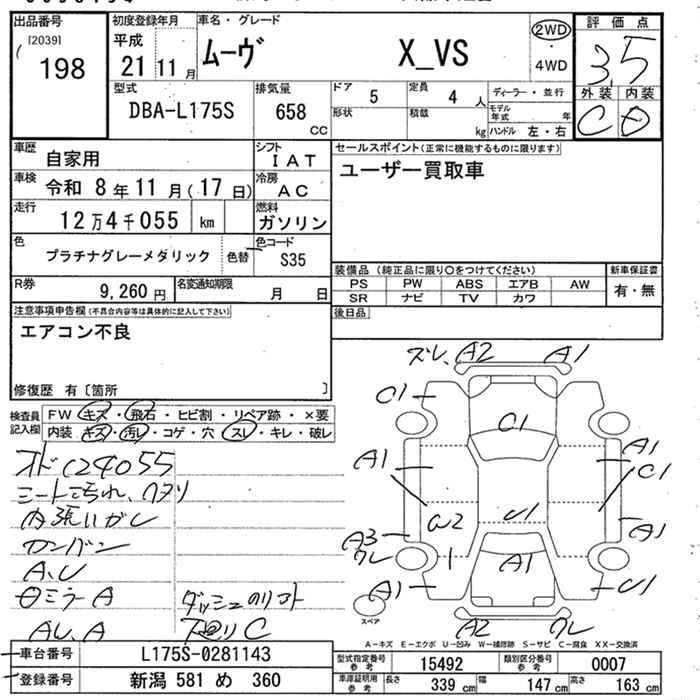 出品番号
[2039]
198
初度登録年月
平成
21 11月
車名・グレード
ムーヴ X_VS
2WD
・
4WD
評価点
3.5
外装 内装
C
型式
DBA-L175S
排気量
658
CC
ドア
5
定員
4 人
形状
積載
kg
ディーラー・並行
モデル年式 年
ハンドル 左・右
車歴
自家用
シフト
IAT
車検
令和 8年11月(17日)
冷房
AC
走行
12万4千055 km
燃料
ガソリン
色
プラチナグレーメタリック
色替
色コード
S35
R券
9,260円
名変通知期限
月 日
セールスポイント(正常に機能するものに限ります)
ユーザー買取車
装備品(純正品に限り○をつけてください)
PS PW ABS エアB AW
SR ナビ TV カワ
新車保証書
有・無
後日品
注意事項申告欄(不具合内容等は具体的に記入して下さい)
エアコン不良
修復歴 有〔箇所 〕
検査員
記入欄
FW キズ・飛石・ヒビ割・リペア跡・×要
内装 キズ・汚レ・コゲ・穴・スレ・キレ・破レ
オド124055
シート汚れ、ヘタリ
内張りハガレ
カンバン
A、U
ミラーA
AU、A
ダッシュ
C
ズレ、A2 A1
C1
C1
A1
A1
C1
W2
U1
A1
A3
ワレ
A1
A1
U1
A2
ワレ
スペア
A-キズ E-エクボ U-凹み W-補修跡 S-サビ C-腐食 XX-交換済
車台番号
L175S-0281143
登録番号
新潟 581 め 360
型式指定番号
参考
15492
類別区分番号
参考
0007
車庫証明用
参考
長さ
339 cm
幅
147 cm
高さ
163 cm